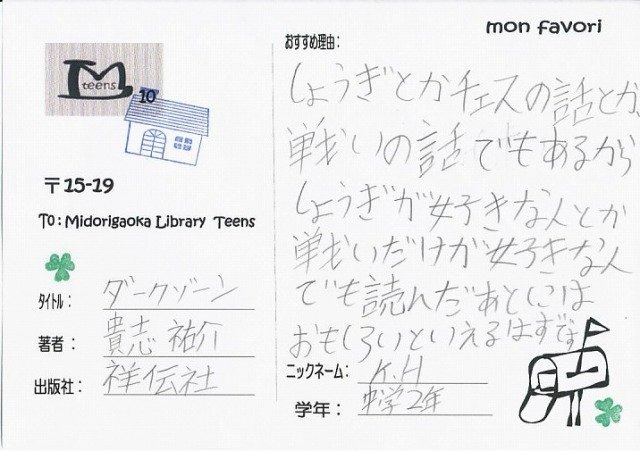 mon favori
teens
10
〒15-19
To: Midorigaoka Library Teens
タイトル: ダークゾーン
著者: 貴志 祐介
出版社: 祥伝社
おすすめ理由:
しょうぎとかチェスの話とか
戦いの話でもあるから
しょうぎが好きな人とか
戦いだけが好きな人
でも読んだあとには
おもしろいといえるはずです
ニックネーム: K.H
学年: 中学2年